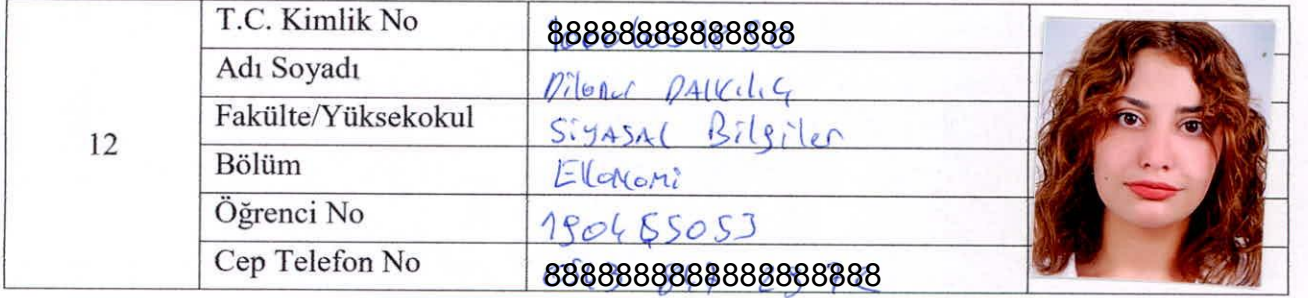 T.C. Kimlik No 88888888888888
Adı Soyadı Dilanur DALKılıÇ
Fakülte/Yüksekokul SiyASAL Bilgiler
12
Bölüm EKonomi
Öğrenci No 190455053
Cep Telefon No 8888888888888888888